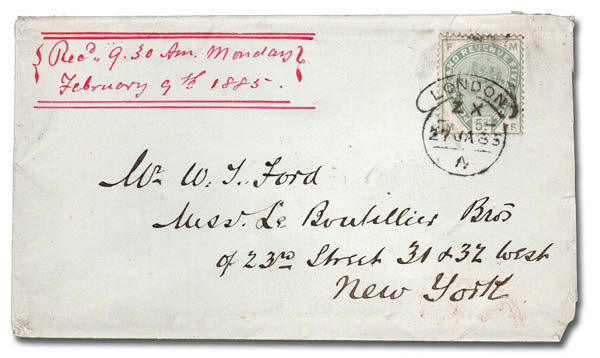 Recd. 9.30 Am. Monday
February 9th 1885.
F M
ND REVENUE FIVE
M F
LONDON
Z X
5
27 JA 85
A
Mr W. J. Ford
Messrs. Le Boutillier Bros
of 23rd Street 31 & 32 West
New York